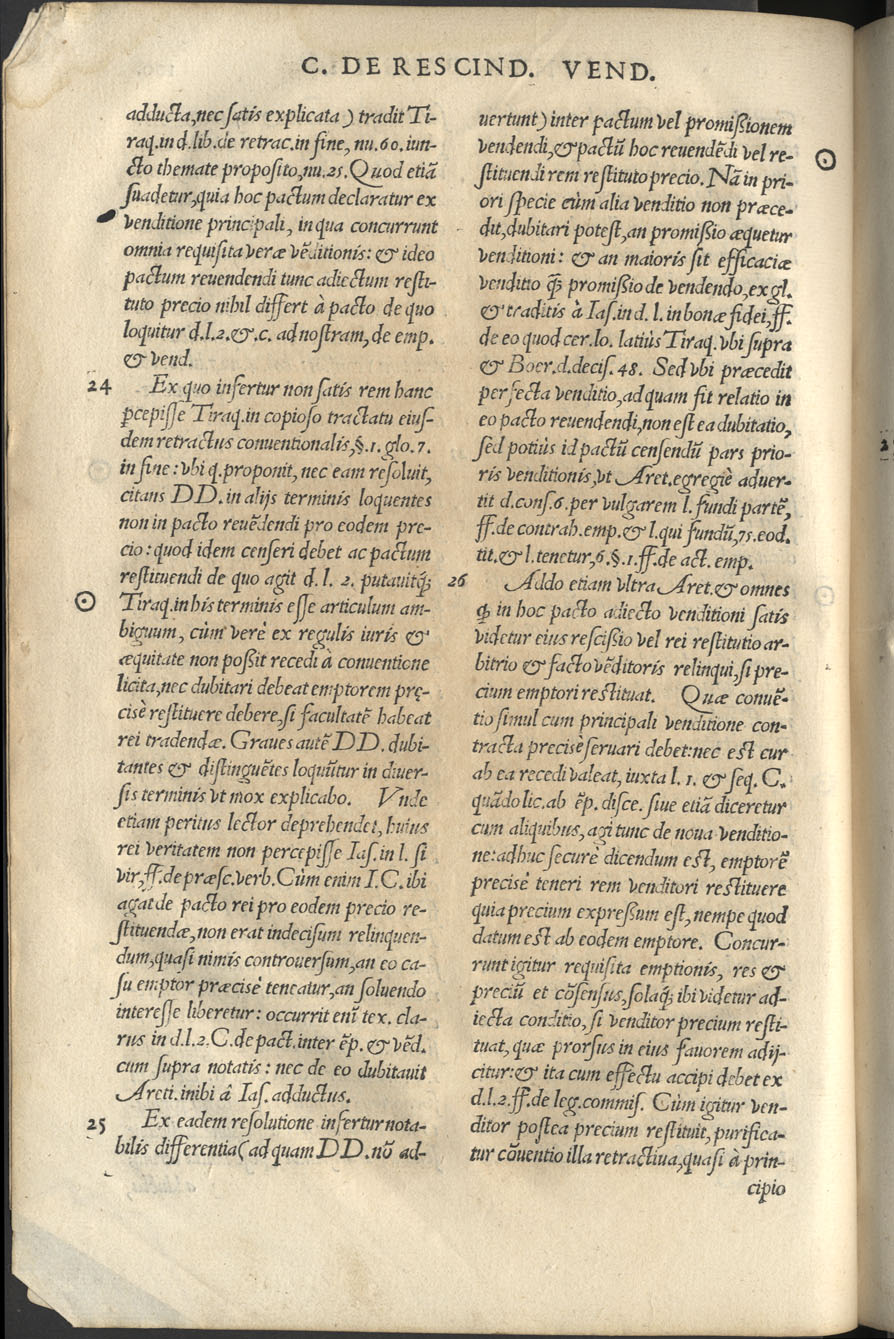 C. DE RESCIND. VEND.
adducta, nec satis explicata) tradit Ti-
raq. in d. lib. de retrac. in fine, nu. 60. iun-
cto themate proposito, nu. 25. Quod etiā
suadetur, quia hoc pactum declaratur ex
venditione principali, in qua concurrunt
omnia requisita veræ vēditionis: & ideo
pactum reuendendi tunc adiectum resti-
tuto precio nihil differt à pacto de quo
loquitur d. l. 2. & .c. ad nostram, de emp.
& vend.
24 Ex quo infertur non satis rem hanc
ꝑcepisse Tiraq. in copioso tractatu eius-
dem retractus conuentionalis, §. 1. glo. 7.
in fine: vbi q. proponit, nec eam resoluit,
citans DD. in alijs terminis loquentes
non in pacto reuēdendi pro eodem pre-
cio: quod idem censeri debet ac pactum
restituendi de quo agit d. l. 2. putauitq́;
Tiraq. in his terminis esse articulum am-
biguum, cùm verè ex regulis iuris &
æquitate non poßit recedi à conuentione
licita, nec dubitari debeat emptorem prę-
cisè restituere debere, si facultatē habeat
rei tradendæ. Graues autē DD. dubi-
tantes & distinguētes loquūtur in diuer-
sis terminis vt mox explicabo. Vnde
etiam peritus lector deprehendet, huius
rei veritatem non percepisse Ias. in l. si
vir, ff. de præsc. verb. Cùm enim I. C. ibi
agat de pacto rei pro eodem precio re-
stituendæ, non erat indecisum relinquen-
dum, quasi nimis controuersum, an eo ca-
su emptor præcisè teneatur, an soluendo
interesse liberetur: occurrit enī tex. cla-
rus in d. l. 2. C. de pact. inter ēp. & vēd.
cum supra notatis: nec de eo dubitauit
Areti. inibi â Ias. adductus.
25 Ex eadem resolutione infertur nota-
bilis differentia (ad quam DD. nō ad-
uertunt) inter pactum vel promißionem
vendendi, & pactū hoc reuendēdi vel re-
stituendi rem restituto precio. Nā in pri-
ori specie cùm alia venditio non præce-
dit, dubitari potest, an promißio æquetur
venditioni: & an maioris sit efficaciæ
venditio q̃ꝫ promißio de vendendo, ex gl.
& traditis à Ias. in d. l. in bonæ fidei, ff.
de eo quod cer. lo. latiùs Tiraq. vbi supra
& Boer. d. decis. 48. Sed vbi præcedit
perfecta venditio, ad quam fit relatio in
eo pacto reuendendi, non est ea dubitatio,
sed potiùs id pactū censendū pars prio-
ris venditionis, vt Aret. egregiè aduer-
tit d. cons. 6. per vulgarem l. fundi partē,
ff. de contrah. emp. & l. qui fundū, 75. eod.
tit. & l. tenetur, 6. §. 1. ff. de act. emp.
26 Addo etiam vltra Aret. & omnes
q̃ꝫ in hoc pacto adiecto venditioni satis
videtur eius rescißio vel rei restitutio ar-
bitrio & facto vēditoris relinqui, si pre-
cium emptori restituat. Quæ conuē-
tio simul cum principali venditione con-
tracta precisè seruari debet: nec est cur
ab ea recedi valeat, iuxta l. 1. & seq. C.
quādo lic. ab ēp. disce. siue etiā diceretur
cum aliquibus, agi tunc de noua venditio-
ne: adhuc securè dicendum est, emptorē
precisè teneri rem venditori restituere
quia precium expreßum est, nempe quod
datum est ab eodem emptore. Concur-
runt igitur requisita emptionis, res &
preciū et cōsensus, solaq́; ibi videtur ad-
iecta conditio, si venditor precium resti-
tuat, quæ prorsus in eius fauorem adij-
citur: & ita cum effectu accipi debet ex
d. l. 2. ff. de leg. commis. Cùm igitur ven-
ditor postea precium restituit, purifica-
tur cōuentio illa retractiua, quasi à prin-
cipio